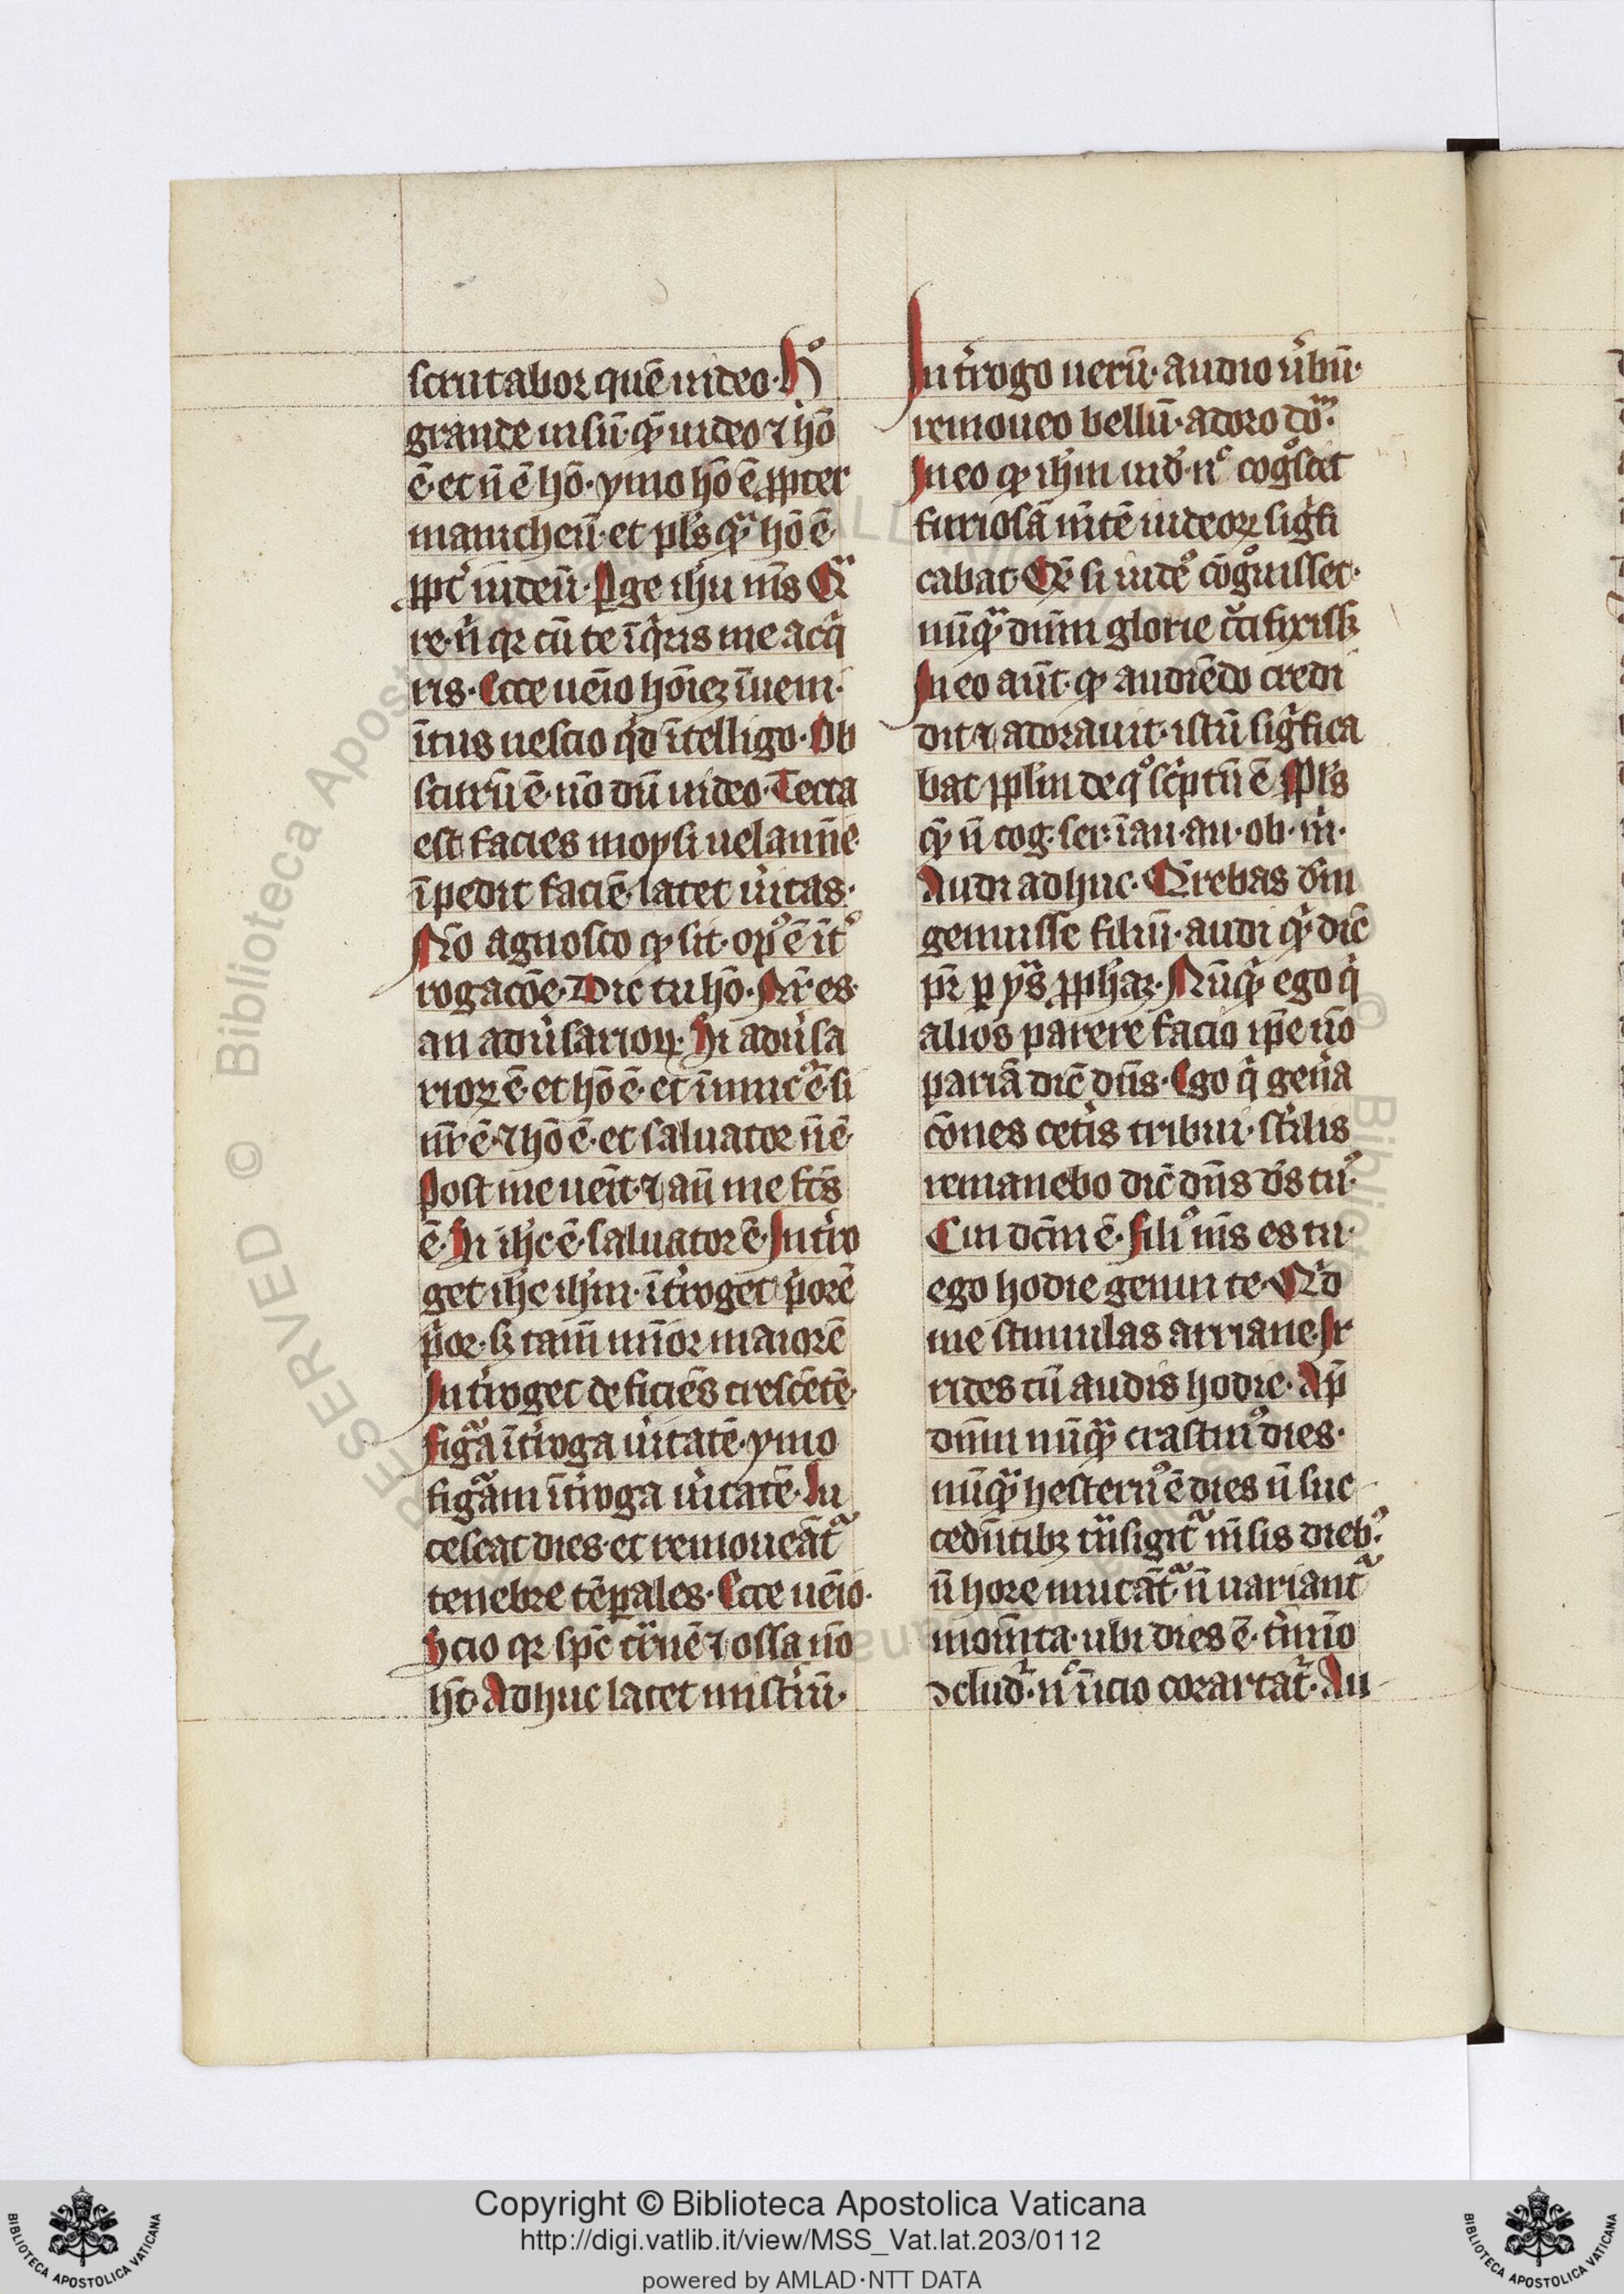 scrutabor quē uideo· Hͦ
grande uisū· qͥ uideo ⁊ hō
ē· et n̄ ē hō· ymo hō ē ꝓpter
manicheū· et plꝰ qͣ hō ē
ꝓpt̓ iudeū· Ꝑge ihu mīs Qͣ
re· ūr qꝛ cū te īqͥris me acqͥ
ris· Ecce uēio hōiez īueni·
ītus nescio qͥd ītelligo· Ob
scurū ē· nō dū uideo· Tecta
est facies moysi uelamē
īpedit faciē· latet ūitas·
Nō agnosco qͥ sit· opꝰ ē īt̓
rogacōe· Dic tu hō· Nr̄ es·
an adūsarioꝝ· Si adūsa
rioꝝ ē· et hō ē· et īimicꝰ ē· si
nr̄ ē· ⁊ hō ē· et saluator n̄ ē·
Post me uēit· ⁊ an̄ me fc̄s
ē· Si ihc ē· saluator ē· Int̓ro
get ihc ihm· īt̓roget pͥorē
pͥor· sꝫ tam̄ mīor maiorē
Int̓roget deficiēs crescētē·
Figͣa īt̓roga ūitatē· ymo
figͣam īt̓roga ūitatē· Lu
cescat dies· et remoueāt̓
tenebre tēꝑales· Ecce uēio·
Scio qꝛ spc̄ cͣnē ⁊ ossa nō
ht̄· Adhuc latet mist̓iū·
Int̓rogo uerū· audio ūbū·
remoueo bellū· adoro dō·
In eo qͥ ihm uid̓· n̄ͨ cogͦscit
furiosā mtē iudeoꝝ sigͥfi
cabat· Qꝛ si uidēꝰ cōgͦuisset·
nūqͣ dnm glorie cͨifixissꝫ
In eo aūt· qͥ audiēdo credi
dit ⁊ adorauit· istū sigͥfica
bat pplm de qͦ scͥptū ē Ppls
qͥ n̄ cog· ser· ī au· au· ob· m̓·
Audi adhuc· Qͥrebas dm̄
genuisse filiū· audi qͥ dic̄
pr̄ ꝑ ysͣ ꝓphaꝫ· Nūqͥ ego qͥ
alios parere facio ip̄e nō
pariā dic̄ dn̄s· Ego qͥ gen̓a
cōnes cet̓is tribui· st̓ilis
remanebo dic̄ dn̄s ds̄ tuꝰ
Cui dcm̄ ē· Filiꝰ mīs es tu·
ego hodie genui te· Qͥd
me stimulas arriane· Ir
rides cū audis hodie· Ap̄
dnm̄ nūqͣ crastinꝰ dies·
nūqͣ hesternꝰ ē dies n̄ suc
cedn̄tibꝫ
n̄ hore mutāt̓ n̄ uariant̓
momīta· ubi dies ē· t̓mīo
ↄclud̓· n̄ͨ īicio coartat̓· Au
Copyright © Biblioteca Apostolica Vaticana
http://digi.vatlib.it/view/MSS_Vat.lat.203/0112
powered by AMLAD·NTT DATA